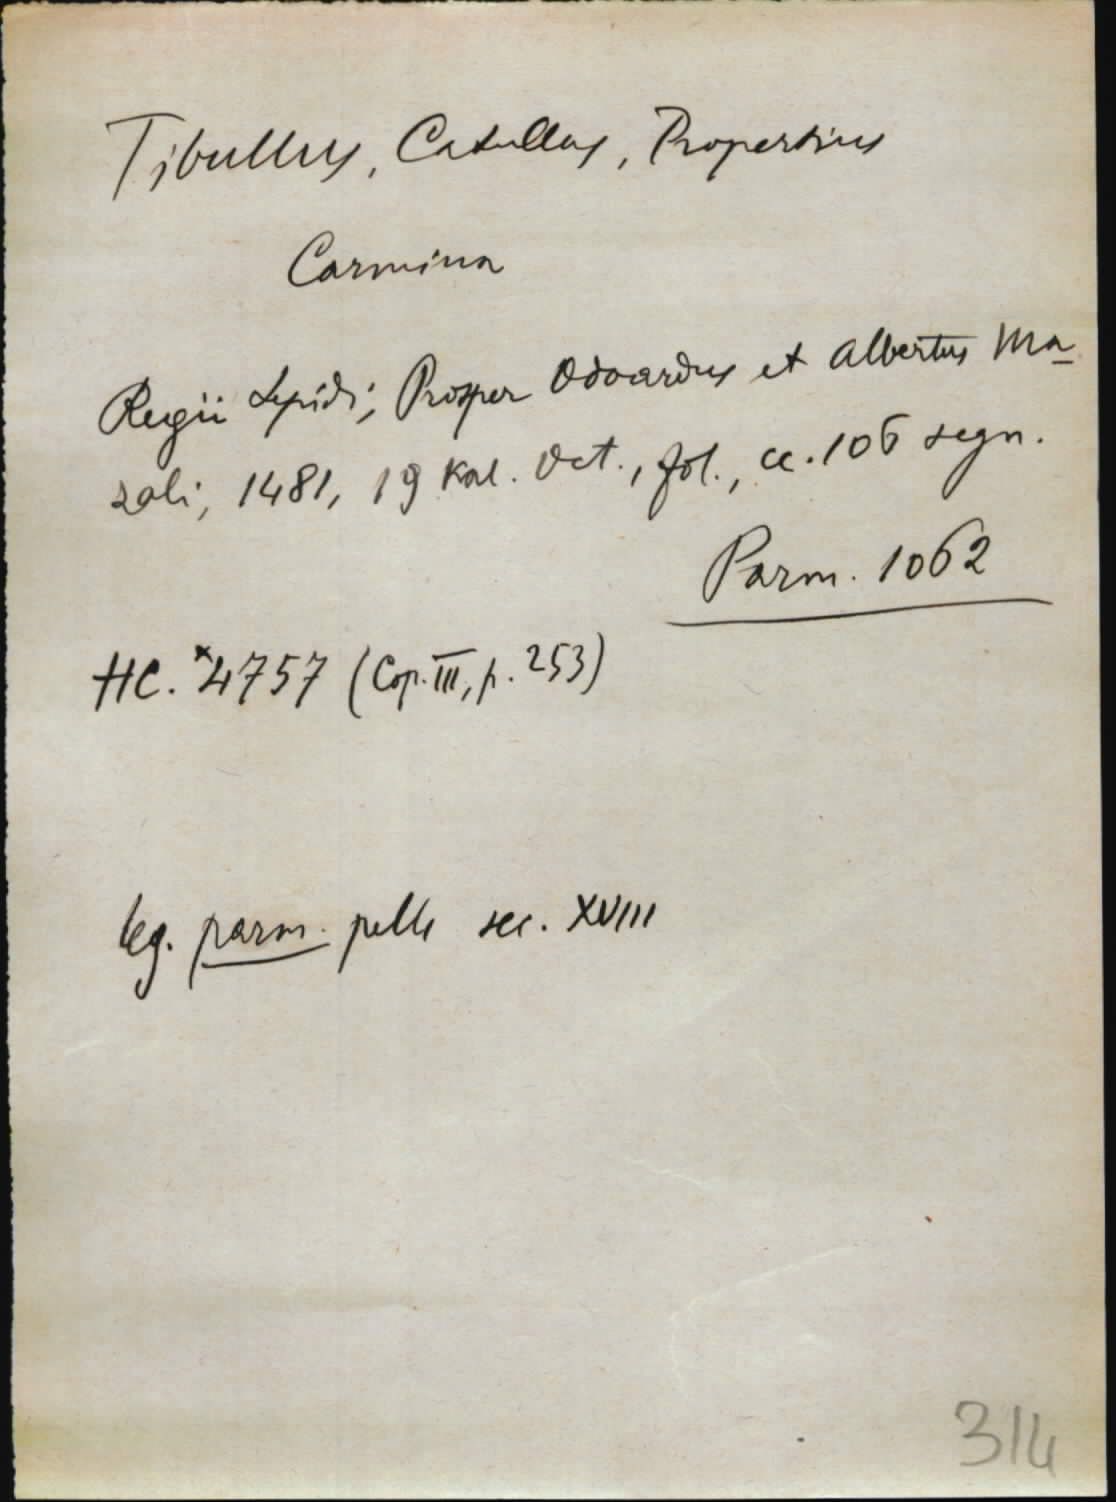 Tibullus, Catullus, Propertius
Carmina
Regii Lepidi, Prosper Odoardus et Albertus Ma-
zali, 1481, 19 Kal. Oct., fol., cc. 106 segn.
Parm. 1062
HC. *4757 (Cop. III, p. 253)
leg. parm. pelle sec. XVIII
314